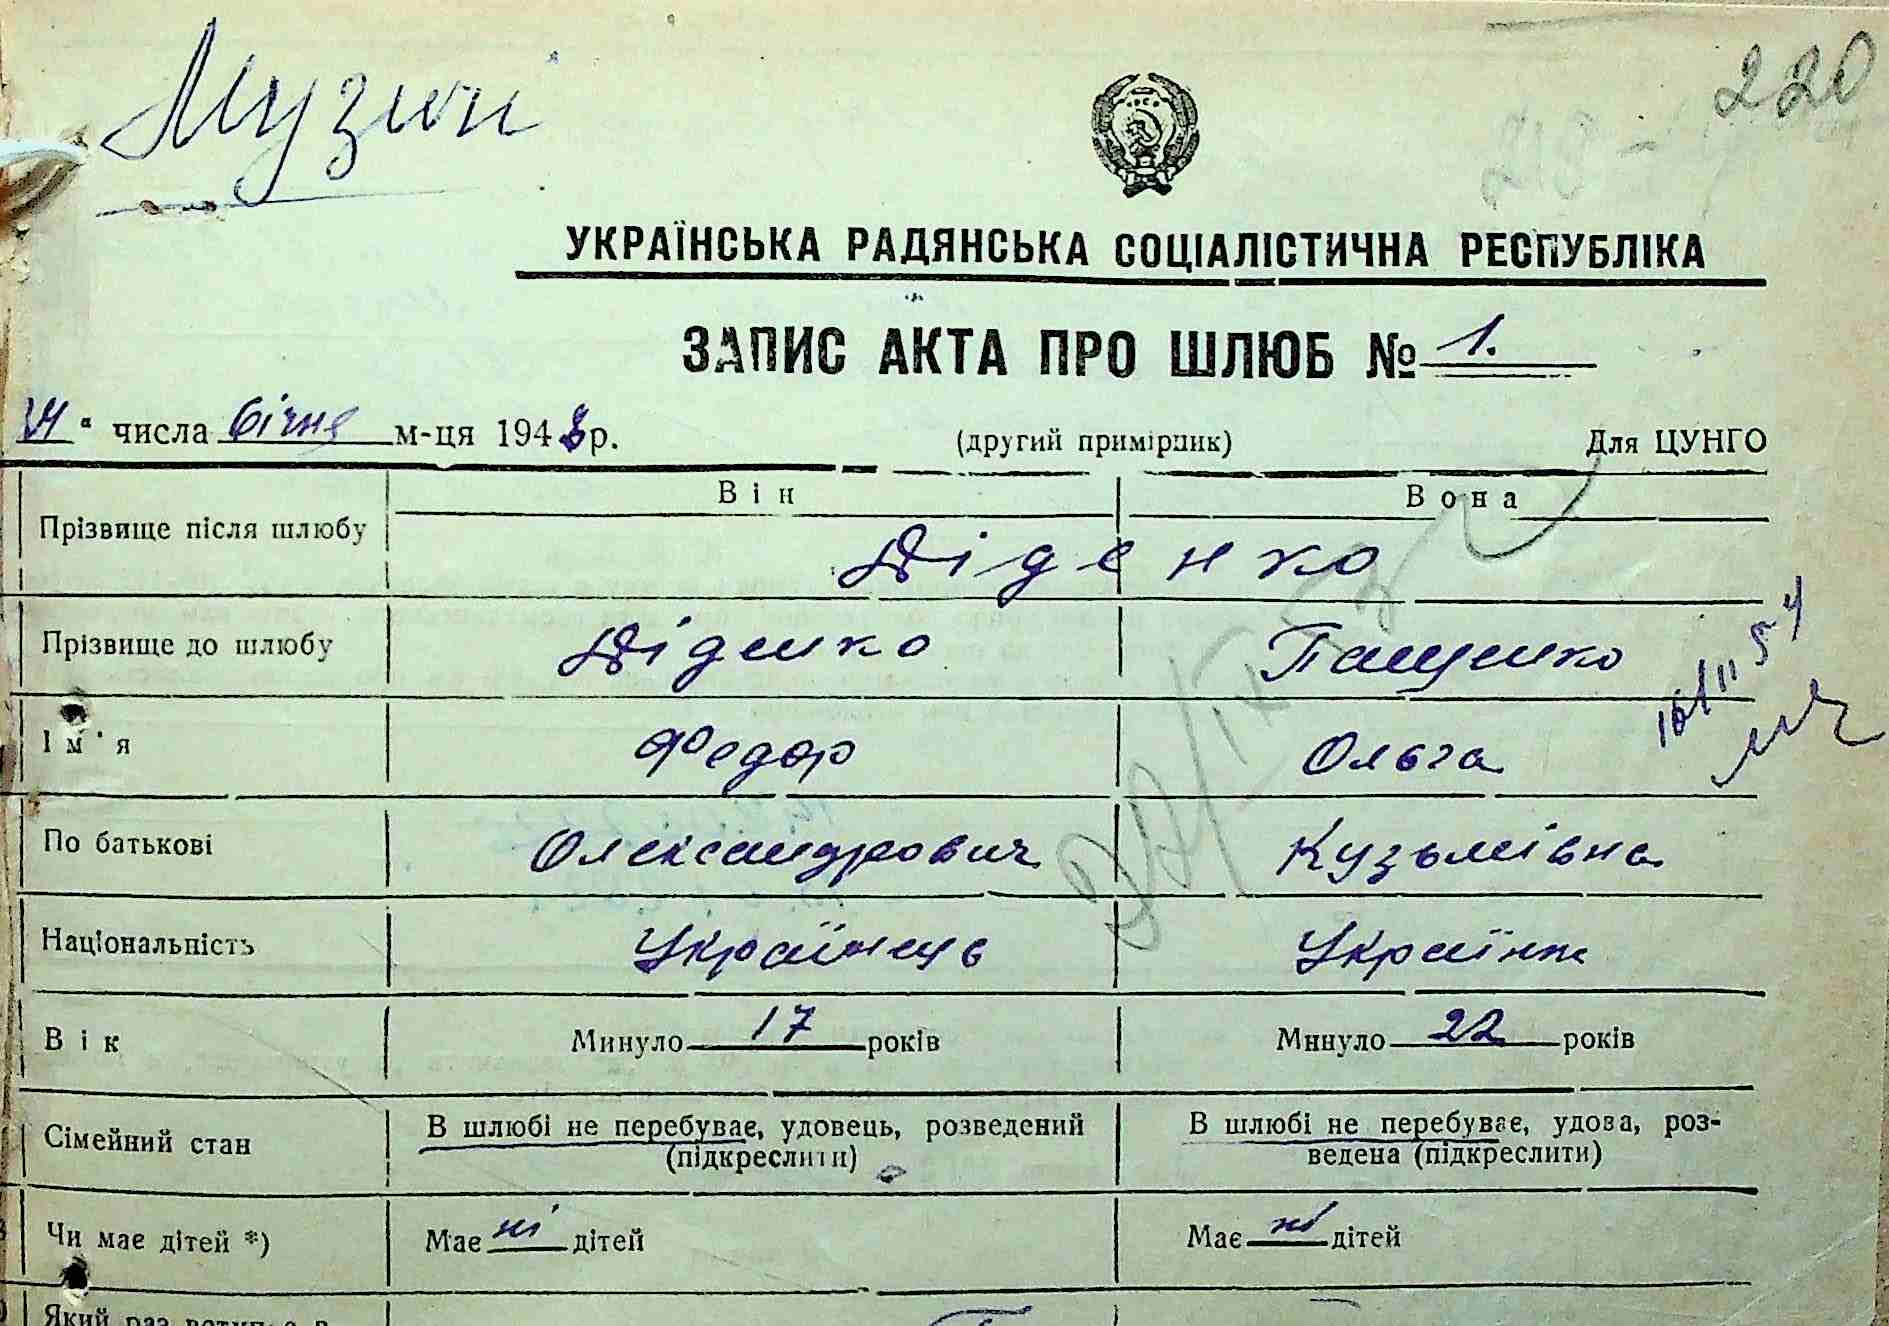 Музичі
220
УКРАЇНСЬКА РАДЯНСЬКА СОЦІАЛІСТИЧНА РЕСПУБЛІКА
ЗАПИС АКТА ПРО ШЛЮБ № 1.
" числа Січня м-ця 1948 р. (другий примірник) Для ЦУНГО
Він Вона
Прізвище після шлюбу Діденко
Прізвище до шлюбу Діденко Пащенко
16/II 54
Ім'я Федор Ольга
По батькові Олександрович Кузьмівна
Національність Українець Українка
Вік Минуло 17 років Минуло 22 років
Сімейний стан В шлюбі не перебуває, удовець, розведений (підкреслити) В шлюбі не перебуває, удова, роз-
ведена (підкреслити)
Чи має дітей *) Має ні дітей Має ні дітей
Який раз